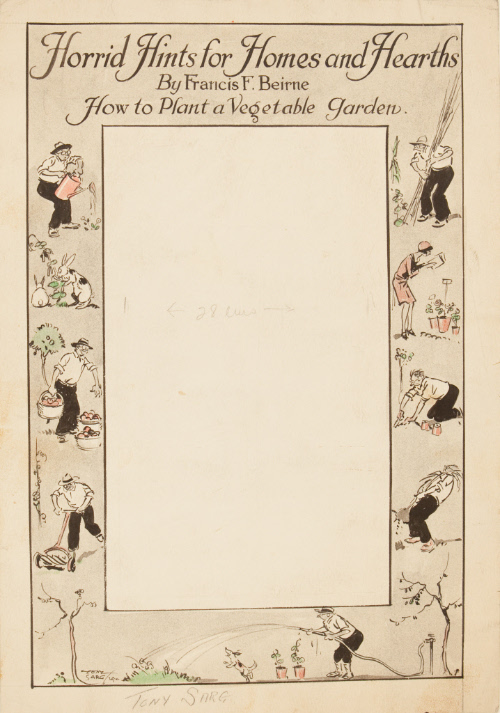 Horrid Hints for Homes and Hearths
By Francis F. Beirne
How to Plant a Vegetable Garden.
TONY SARG
TONY SARG